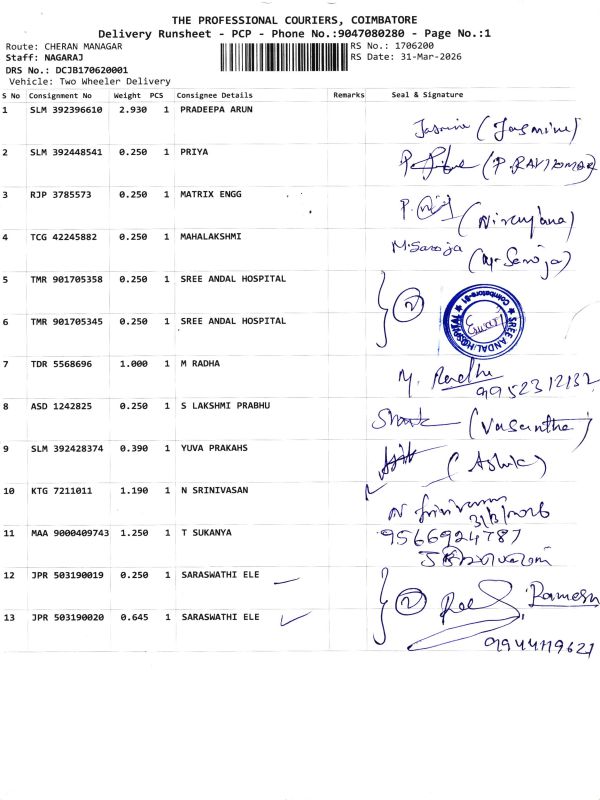 THE PROFESSIONAL COURIERS, COIMBATORE
Delivery Runsheet - PCP - Phone No.:9047080280 - Page No.:1
Route: CHERAN MANAGAR RS No.: 1706200
Staff: NAGARAJ RS Date: 31-Mar-2026
DRS No.: DCJB170620001
Vehicle: Two Wheeler Delivery
S No Consignment No Weight PCS Consignee Details Remarks Seal & Signature
1 SLM 392396610 2.930 1 PRADEEPA ARUN
Jasmine (Jasmine)
2 SLM 392448541 0.250 1 PRIYA
(P. RAVIKUMAR)
3 RJP 3785573 0.250 1 MATRIX ENGG
(Niranjana)
4 TCG 42245882 0.250 1 MAHALAKSHMI
M.Saroja (M. Saroja)
5 TMR 901705358 0.250 1 SREE ANDAL HOSPITAL
2
SREE ANDAL HOSPITAL Coimbatore
6 TMR 901705345 0.250 1 SREE ANDAL HOSPITAL
7 TDR 5568696 1.000 1 M RADHA
M. Radha
9952312132
8 ASD 1242825 0.250 1 S LAKSHMI PRABHU
(Vasantha)
9 SLM 392428374 0.390 1 YUVA PRAKAHS
(Ashik)
10 KTG 7211011 1.190 1 N SRINIVASAN
N Srinivasan
31/3/2026
11 MAA 9000409743 1.250 1 T SUKANYA
9566924787
12 JPR 503190019 0.250 1 SARASWATHI ELE
2 Ramesh
13 JPR 503190020 0.645 1 SARASWATHI ELE
9944119621